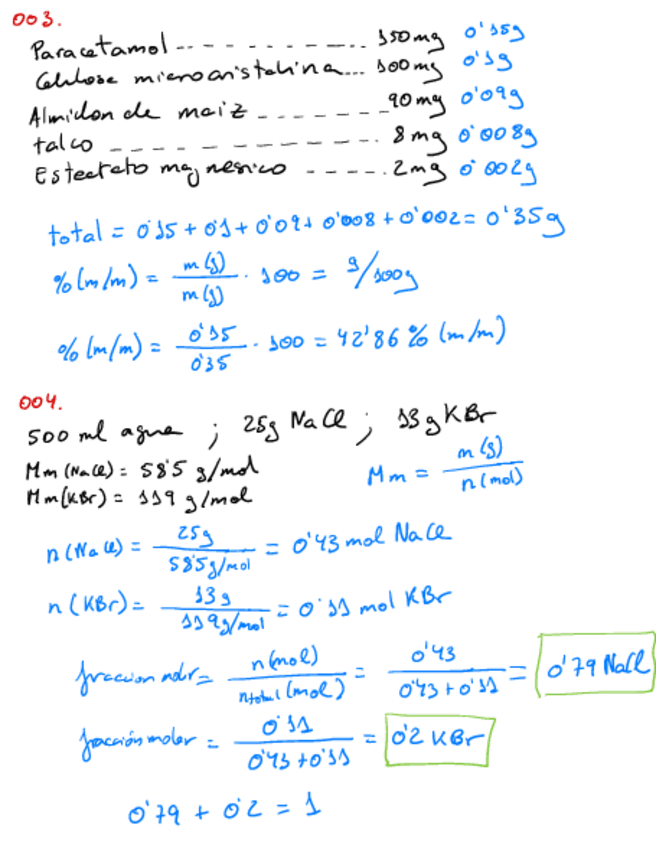 003.
Paracetamol -- - - - - - - - - - . 150mg 0'15g
Celulosa microcristalina... 100mg 0'1g
Almidon de maiz - - - - - - - 90mg 0'09g
talco - - - - - - - - - - - - - . 8mg 0'008g
Estearato magnesico - - - - -. 2mg 0'002g
total = 0'15 + 0'1 + 0'09 + 0'008 + 0'002 = 0'35g
%(m/m) = m(g)/m(g) · 100 = g/100g
%(m/m) = 0'15/0'35 · 100 = 42'86% (m/m)
004.
500 ml agua ; 25g NaCl ; 13g KBr
Mm(NaCl) = 58'5 g/mol
Mm(KBr) = 119 g/mol
Mm = m(g)/n(mol)
n(NaCl) = 25g/58'5g/mol = 0'43 mol NaCl
n(KBr) = 13g/119g/mol = 0'11 mol KBr
fraccion molar = n(mol)/ntotal(mol) = 0'43/0'43 + 0'11 = 0'79 NaCl
fracción molar = 0'11/0'43 + 0'11 = 0'2 KBr
0'79 + 0'2 = 1